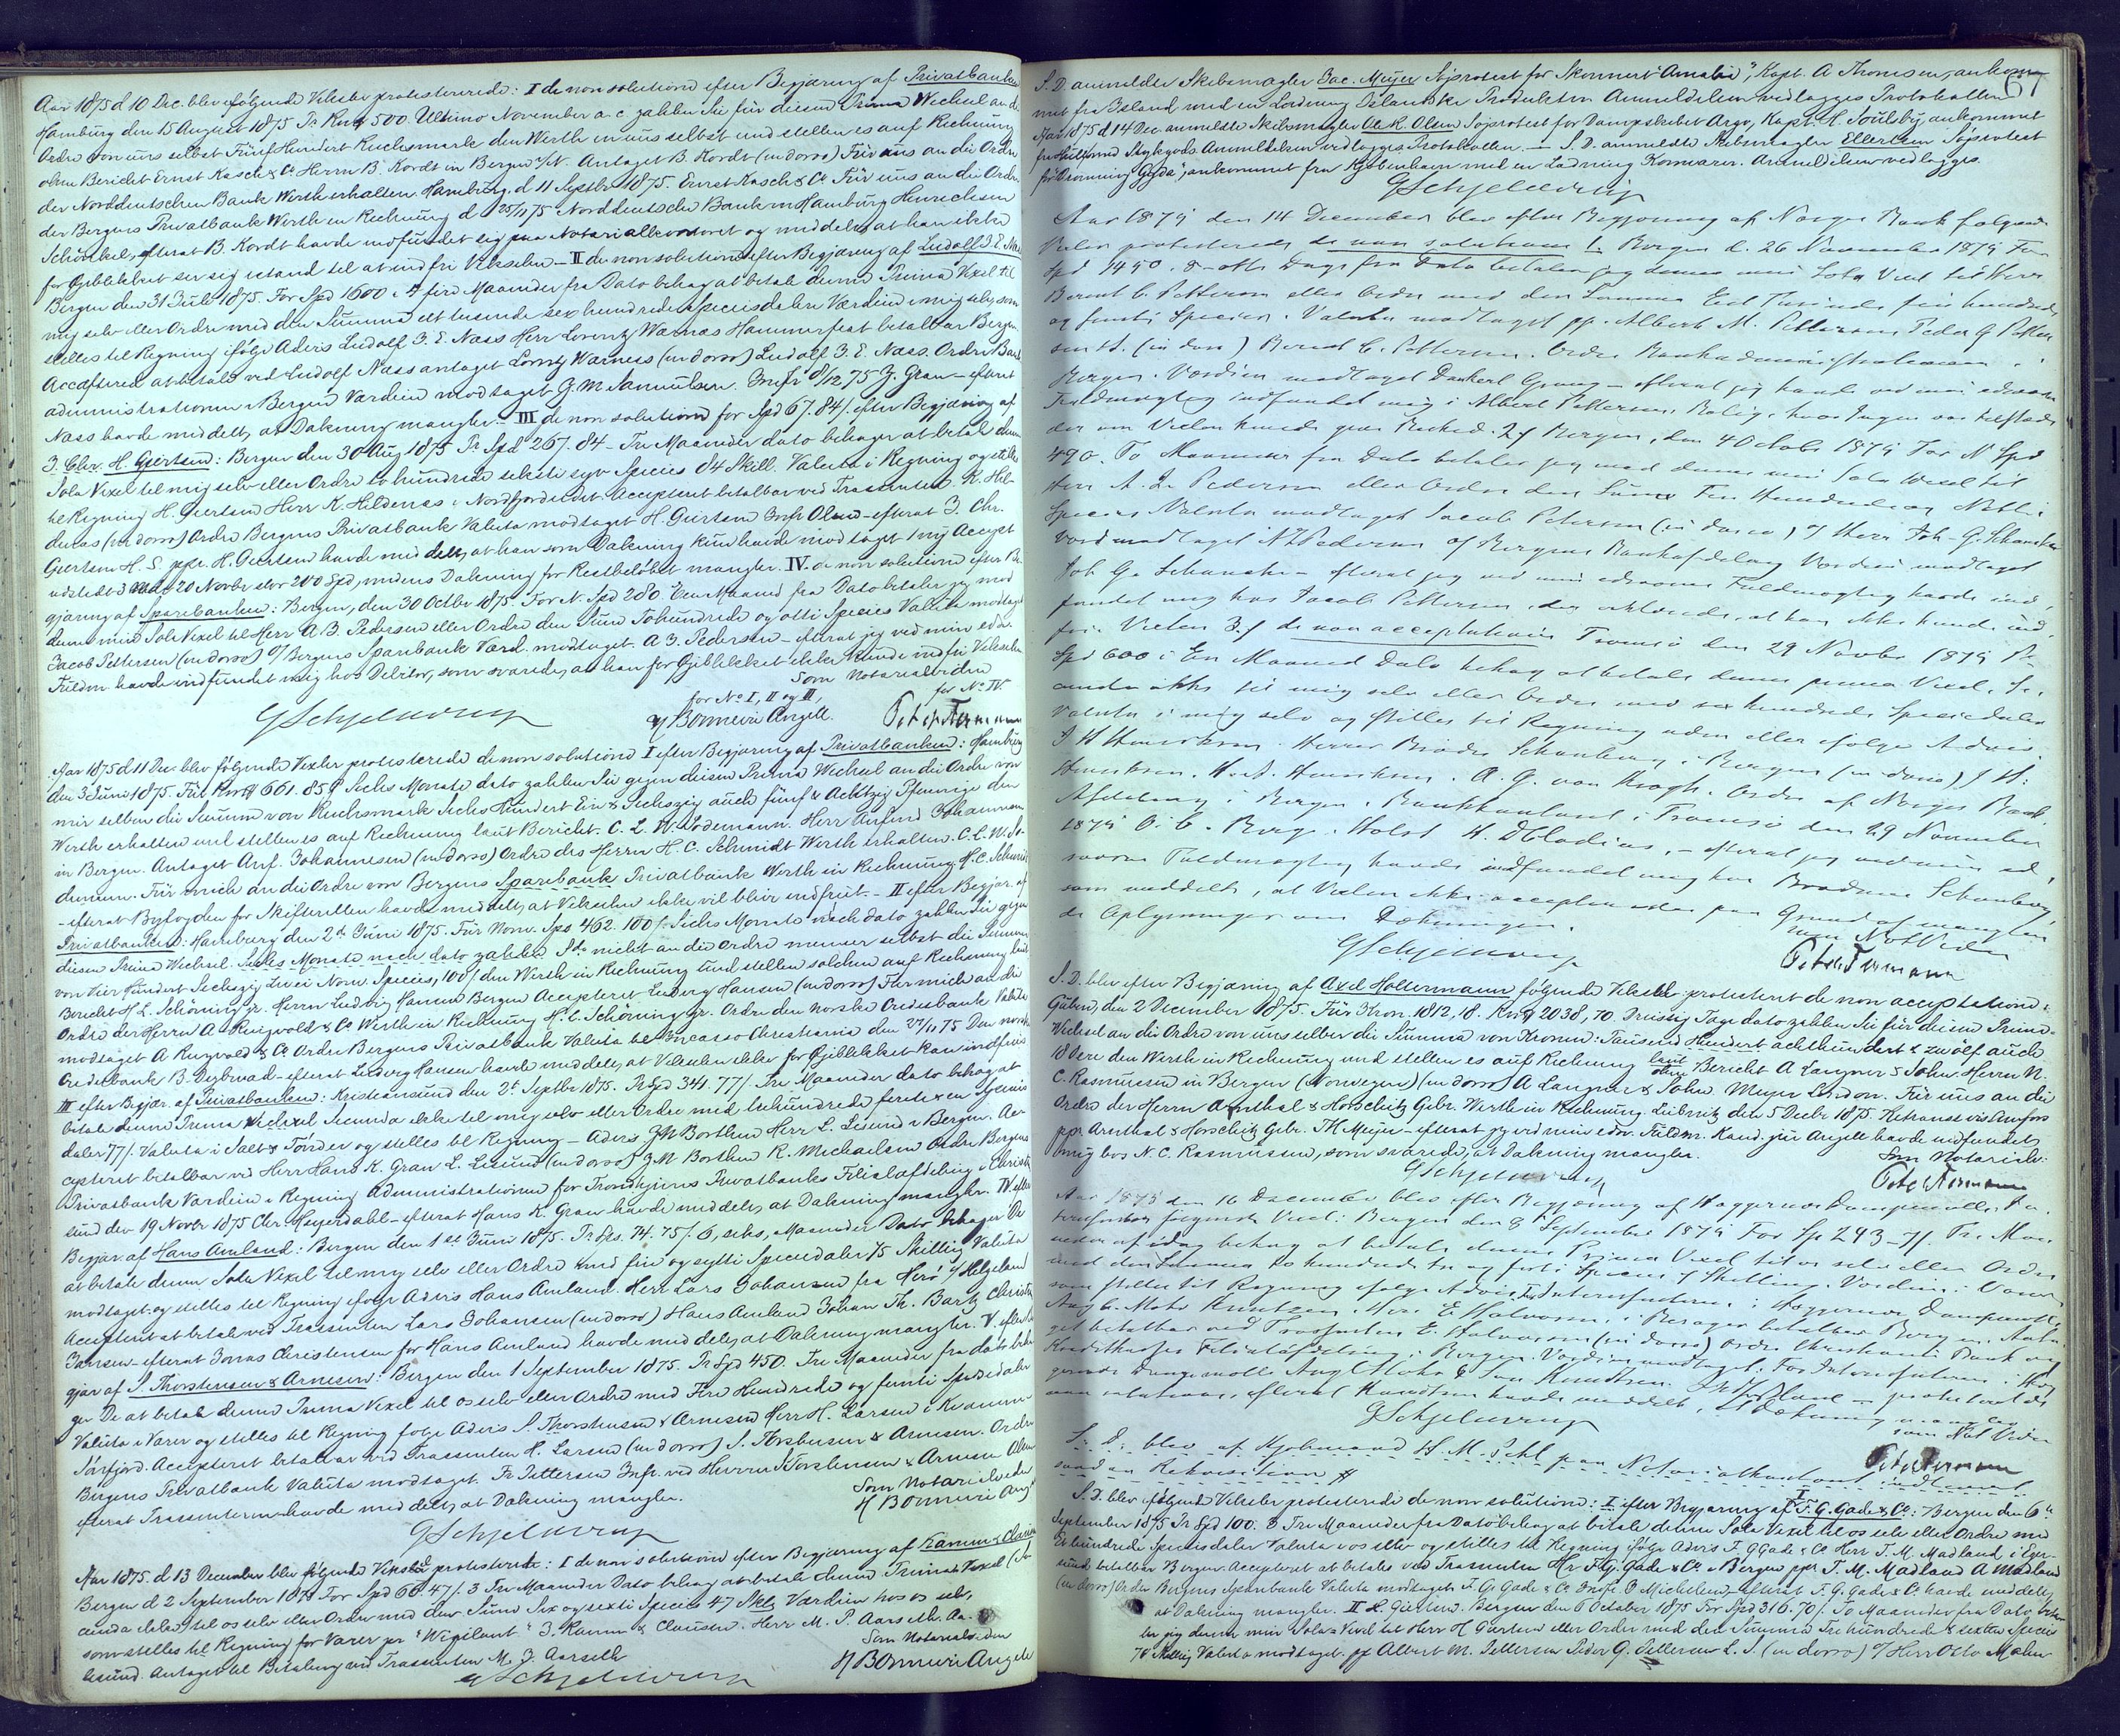 Aar 1875 d 10 Dec. blev følgende Veksler protesterede: I de non solutione efter Begjæring af Privatbanken
Hamburg den 15 August 1875 Pr Rmk 500. Ultimo November a. c zahlen Sie für diesen Prima Wechsel an die
Ordre von uns selbst Fünf Hundert Reichsmark den Werth in uns selbst und stellen es auf Rechnung
ohne Bericht Ernst Kasch & Co Herrn B. Kordt in Bergen Antaget B. Kordt (in dorso) Für uns an die Ordre
der Norddeutschen Bank Werth erhalten. Hamburg d 11 Septbr 1875. Ernst Kasch & Co Für uns an die Ordre
der Bergens Privatbank Werth in Rechnung d 25/11 75 Norddeutsche Bank in Hamburg Hinrichsen
Schönkel, efterat B. Kordt havde indfundet sig paa Notarialkontoret og meddelt, at han ikke
for Øieblikket ser sig istand til at indfri Vekselen — II de non solutione efter Begjæring af Ludolf J. E. Nass
Bergen den 31 Juli 1875. For Spd 1600 Fire Maaneder fra Dato behag at betale denne Prima Vexel til
mig selv eller Ordre med den Summa ett tusende sex hundrede Speciesdaler Værdien i mig selv, som
stilles til Regning ifølge Advis Ludolf J. E. Nass Herr Lorentz Warnæs Hammerfest betalbar Bergen
Accepteres at betale ved Ludolf Nass antaget Lorentz Warness (in dorso) Ludolf J. E. Nass. Ordre Bank
administrationen i Bergen Værdien modtaget G M Samuelsen. Insfr 8/12 75 J. Gran — efterat
Nass havde meddelt, at Dækning mangler. III de non solutione for Spd 67. 84/. efter Begjæring af
J. Chr. H. Gjertsen: Bergen den 30 Aug 1875 Pr Spd 267. 84 — Tre Maaneder dato behager at betale denne
Sola Vexel til mig selv eller Ordre to hundrede seksti syv Species 84 Skill. Valuta i Regning og stilles
til Regning H. Giertsen Herr K. Hildenæs i Nordfjordeidet. Acceptent betalbar ved Trassenten. K. Hil-
denæs (in dorso) Ordre Bergens Privatbank Valuta modtaget H. Giertsen Insfr Olsen — efterat J. Chr.
Giertsen H. S. ppr. H. Giertsen havde meddelt, at han som Dækning kun havde modtaget 1 ny Accept
udstedt 3 Mdr 20 Novbr stor 200 Spd, medens Dækning for Restbeløbet mangler. IV. de non solutione efter Be-
gjæring af Sparebanken: Bergen, den 30 Octbr 1875 For N. Spd 280. Een Maaned fra Dato betaler jeg mod
denne min Sola Vexel til Herr A. B. Pedersen eller Ordre den Sum Tohundrede og otti Species Valuta modtaget
Jacob Pettersen (in dorso) Bergens Sparebank Værd. modtaget. A. B. Pedersen — efterat jeg ved min edsv.
Fuldm. havde indfundet mig hos Debitor, som svarede, at han for Øieblikket ikke kunde indfri Vekselen
Som Notarialvidne
for No I, II og III, for No IV.
GSchjelderup Bonnevie Angell. Petersmann
Aar 1875 d 11 Dec. blev følgende Vexler protesterede de non solutione I efter Begjæring af Privatbanken: Hamburg
den 3 Juni 1875. Für Rmk 661. 85 Sechs Monate dato zahlen Sie gegen diesen Prima Wechsel an die Ordre von
mir selben die Summa von Reichsmark Sechs Hundert Ein & Sechszig auch fünf & Achtzig Pfennige den
Werth erhalten und stellen es auf Rechnung laut Bericht. C. L. W. Lodemann. Herr Anfind Johannesen
in Bergen. Antaget Anf. Johannesen (in dorso) Ordre des Herrn H. C. Schmidt Werth erhalten C. L. W. Lo-
demann. Für mich an die Ordre von Bergens Sparebank Privatbank Werth in Rechnung H. C. Schmidt
— efterat Byfogden for Skifteretten havde meddelt, at Vekselen ikke vil blive indfriet. — II efter Begjær. af
Privatbanken: Hamburg den 2 Juni 1875. Für Norw. Sps 462. 100/. Sechs Monate nach dato zahlen Sie gegen
diesen Prima Wechsel. Sechs Monate nach dato zahlen Sie nicht an die Ordre meiner selbst die Summa
von Vier Hundert Sechszig Zwei Norw. Species, 100/ den Werth in Rechnung und stellen solchen auf Rechnung laut
Bericht H L. Schöning jr. Herrn Ludvig Hansen Bergen Accepteret Ludvig Hansen (in dorso) Für mich an die
Ordre der Herrn A Ringvold & Co Werth in Rechnung H. C. Schöning jr. Ordre den norske Creditbank Valuta
modtaget A Ringvold & Co Ordre Bergens Privatbank Valuta til Incasso Christiania den 27/11 75 Den norske
Creditbank B. Dybwad — efterat Ludvig Hansen havde meddelt, at Vekselen ikke for Øieblikket kan indfries
III efter Begjær. af Privatbanken: Kristiansund den 2t Septbr 1875. Pr Spd 341. 77/. Tre Maaneder dato behag at
betale denne Prima Wechsel Secunda ikke til mig selv eller Ordre med trehundrede førti & en Species
daler 77/. Valuta i Salt & Tønder og stilles til Regning — Advis J N Borthen Herr L. Lisund i Bergen. Ac-
cepteret betalbar ved Herr Hans K. Gran L. Lisund (in dorso) J N Borthen R. Michaelsen Ordre Bergens
Privatbank Værdien i Regning Administrationen for Trondhjems Privatbanks Filialafdeling i Christian-
sund den 19 Novbr 1875 Chr. Heyerdahl — efterat Hans K. Gran havde meddelt, at Dækning mangler. IV. efter
Begjær. af Hans Amland: Bergen den 1ste Juni 1875. Pr Sps. 74. 75/. 6, seks, Maaneder Dato behager De
at betale denne Sola Vexel til mig selv eller Ordre med fire og sytti Speciedaler 75 Skilling Valuta
modtaget, og stilles til Regning ifølge Advis Hans Amland. Herr Lars Johansen fra Herø i Helgeland
Accepteret at betale ved Trassenten Lars Johansen (in dorso) Hans Amland Johan Th. Bartz Christen
Jansen — efterat Jonas Christensen for Hans Amland havde meddelt, at Dækning mangler. V. efter Be-
gjær af S. Thorstensen & Arnesen: Bergen den 1 September 1875. Pr Spd 450. Tre Maaneder fra dato beha-
ger De at betale denne Prima Vexel til os selv eller Ordre med Fire Hundrede og femti Speciedaler
Valuta i Varer og stilles til Regning følge Advis S. Thorstensen & Arnesen Herr H. Larsen i Kvænan-
Sørfjord. Accepteret betalbar ved Trassenten H. Larsen (in dorso) S. Thorstensen & Arnesen. Ordre
Bergens Privatbank Valuta modtaget. Fr Pettersen Insfr. ved Herrer Thorstensen & Arnesen Olsen
efterat Trassenterne havde meddelt, at Dækning mangler.
Som Notarialvidne
GSchjelderup Bonnevie Angell
Aar 1875. d 13 December blev følgende Veksel protesteret: I de non solutione efter Begjæring af Ramm & Clausen
Bergen d 2 September 1875 For Spd 66. 47/. 3 Tre Maaneder Dato behag at betale denne Prima Vexel (Se-
cunda ikke) til os selv eller Ordre med den Sum Sex og sexti Species 47 Sk. Værdien hos os selv,
som stilles til Regning for Varer pr "Wigilant" J. Ramm & Clausen. Herr M. P. Aarseth. Aa-
lesund. Antaget til Betaling ved Trassenten M. J. Aarseth
Som Notarialvidne
GSchjelderup Bonnevie Angell
67
S. D. anmeldte Skibsmægler Jac. Meyer Søprotest for Skonnert "Amalie", Kapt. A Thomsen, ankom-
met fra Island med en Ladning Islandske Produkter. Anmeldelsen vedlægges Protokollen
Aar 1875 d 14 Dec. anmeldte Skibsmægler Ole R. Olsen Søprotest for Dampskibet Argo, Kapt. H. Soulsby, ankommet
fra Hull med Stykgods. Anmeldelsen vedlægges Protokollen. — S. D. anmeldte Skibsmægler Ellertsen Søprotest
for "Dronning Gyda", ankommet fra Kjøbenhavn med en Ladning Kornvarer. Anmeldelsen vedlægges.
GSchjelderup
Aar 1875 den 14 December blev efter Begjæring af Norges Bank følgende
Vexler protesterede de non solutione 1. Bergen d. 26 November 1875 For
Spd 1450. 8 – otte Dage fra Dato betaler jeg denne min Sola Vexel til Herr
Bernt C. Pettersen eller Ordre med den Summa Eet Tusinde fire hundrede
og femti Species. Valuta modtaget pp. Albert M. Pettersen Peder G Petter-
sen (in dorso) Bernt C. Pettersen. Ordre Bankadministrationen i
Bergen. Værdien modtaget Dankert Grung — efterat jeg havde ved min edsvorne
Fuldmægtig indfundet mig i Albert Pettersens Bolig, hvor Ingen var tilstede,
der om Vexlen kunde give Besked. 2/ Bergen, den 4 Octobr 1875 For N Spd
490. To Maaneder fra Dato betaler jeg mod denne min Sola Wexel til
Herr A. Z. Pedersen eller Ordre den Sum Fire Hundrede og Nitti
Species Valuta modtaget Jacob Petersen (in dorso) Herr Joh. G. Schanche
Værd. modtaget Pedersen Bergens Bankafdeling Værdien modtaget
Joh G. Schanche — efterat jeg ved min edsvorne Fuldmægtig havde ind-
fundet mig hos Jacob Pettersen, der erklærede, at han ikke kunde ind-
fri Vexlen 3/ de non acceptatione Tromsø den 29 Novbr 1875 Pr
Spd 600 Een Maaned Dato behag at betale denne prima Vexel, Se-
cunda ikke til mig selv eller Ordre med sex hundrede Speciedaler
Valuta i mig selv og stilles til Regning uden eller ifølge Advis
J H Henriksen. Herrer Brødr. Schanberg, Bergen (in dorso) J H:
Henriksen. H. A. Henriksen. A. G. van Krogh. Ordre af Norges Bank
Afdeling i Bergen. Bankkontoret i Tromsø den 29 November
1875 O. C. Borge. Holst H. DCladius, — efterat jeg ved min ed-
svorne Fuldmægtig havde indfundet mig hos Brødrene Schanberg,
som meddelte, at Vexlen ikke accepteredes paa Grund af manglen-
de Oplysninger om Dækningen.
som NotVidne
GSchjelderup Petersmann
S. D. blev efter Begjæring af Axel Holtermann følgende Veksel protesteret de non acceptatione:
Guben, den 2 December 1875. Für Kron. 1812, 18. Rmk 2038, 70. Dreissig Tage dato zahlen Sie für diesen Prima-
Wechsel an die Ordre von uns selber die Summa von Kronen: Tausend Hundert achthundert & zwölf auch
18 Oere den Werth in Rechnung und stellen es auf Rechnung laut ohne Bericht A Langner & Sohn. Herrn N.
C. Rasmussen in Bergen (Norwegen) (in dorso) A Langner & Sohn. Meyer London. Für uns an die
Ordre der Herrn Arnthal & Horschitz Gebr. Werth in Rechnung. Leibnitz den 5 Decbr 1875.
ppr. Arnthal & Horschitz Gebr. Th Meyer — efterat jeg ved min edsv. Fuldm. Kand. jur Angell havde indfundet
mig hos N. C. Rasmussen, som svarede, at Dækning mangler.
Som Notarialv.
GSchjelderup Petersmann
Aar 1875 den 16 December blev efter Begjæring af Høggernæs Dampmølles In-
teressenter følgende Vexel: Bergen den 8 September 1875 For Sp 243 – 7/. Tre Maa-
neder af idag behag at betale denne Prima Vexel til os selv eller Ordre
med den Summa to hundrede tre og førti Species 7 Skilling. Værdien i Varer
som stilles til Regning ifølge Advis. For Interessenterne i Høggernæs Dampmølle
Aug C. Mohr Knudtzen. Herr E Halvorsen, i Berøger betalbar Bergen. Anta-
get betalbar ved Trassenten E. Halvorsen (in dorso) Ordre Christiania Bank og
Kreditkasses Filialafdeling i Bergen. Værdien modtaget. For Interessenterne i Høg-
gernæs Dampmølle Aug C Mohr & Søn Knudtzen. — protesteret de
non solutione, efterat Knudtzen havde meddelt, at Dækning mangler
som Not Vidne
GSchjelderup Petersmann
S. D. blev af Kjøbmand H. M. Pihl paa Notarialkontoret indleveret
saadan Rekvisition
S. D. blev følgende Veksler protesterede de non solutione: I efter Begjæring af F. G. Gade & Co: Bergen den 6te
September 1875 Pr Spd 100. 3 Tre Maaneder fra Dato behag at betale denne Sola Vexel til os selv eller Ordre med
Et hundrede Speciesdaler Valuta i os selv og stilles til Regning ifølge Advis F. G Gade & Co Herr T. M. Madland i Eger-
sund betalbar Bergen Accepteret at betales ved Trassenten Hr F. G. Gade & Co i Bergen ppr T. M. Madland A Madland
(in dorso) Ordre Bergens Sparebank Valuta modtaget F. G. Gade & Co Insfr. O Michelsen — efterat F. G. Gade & Co havde meddelt,
at Dækning mangler. II H. Giertsen. Bergen den 6 October 1875 For Spd 316. 70/. To Maaneder fra Dato beta-
ler jeg denne min Sola Vexel til Herr H Giertsen eller Ordre med den Summa Trehundrede & sexten Species
70 Skilling Valuta modtaget. pp Albert M. Pettersen Peder G. Pettersen L. S. (in dorso) Herr Otto Malm